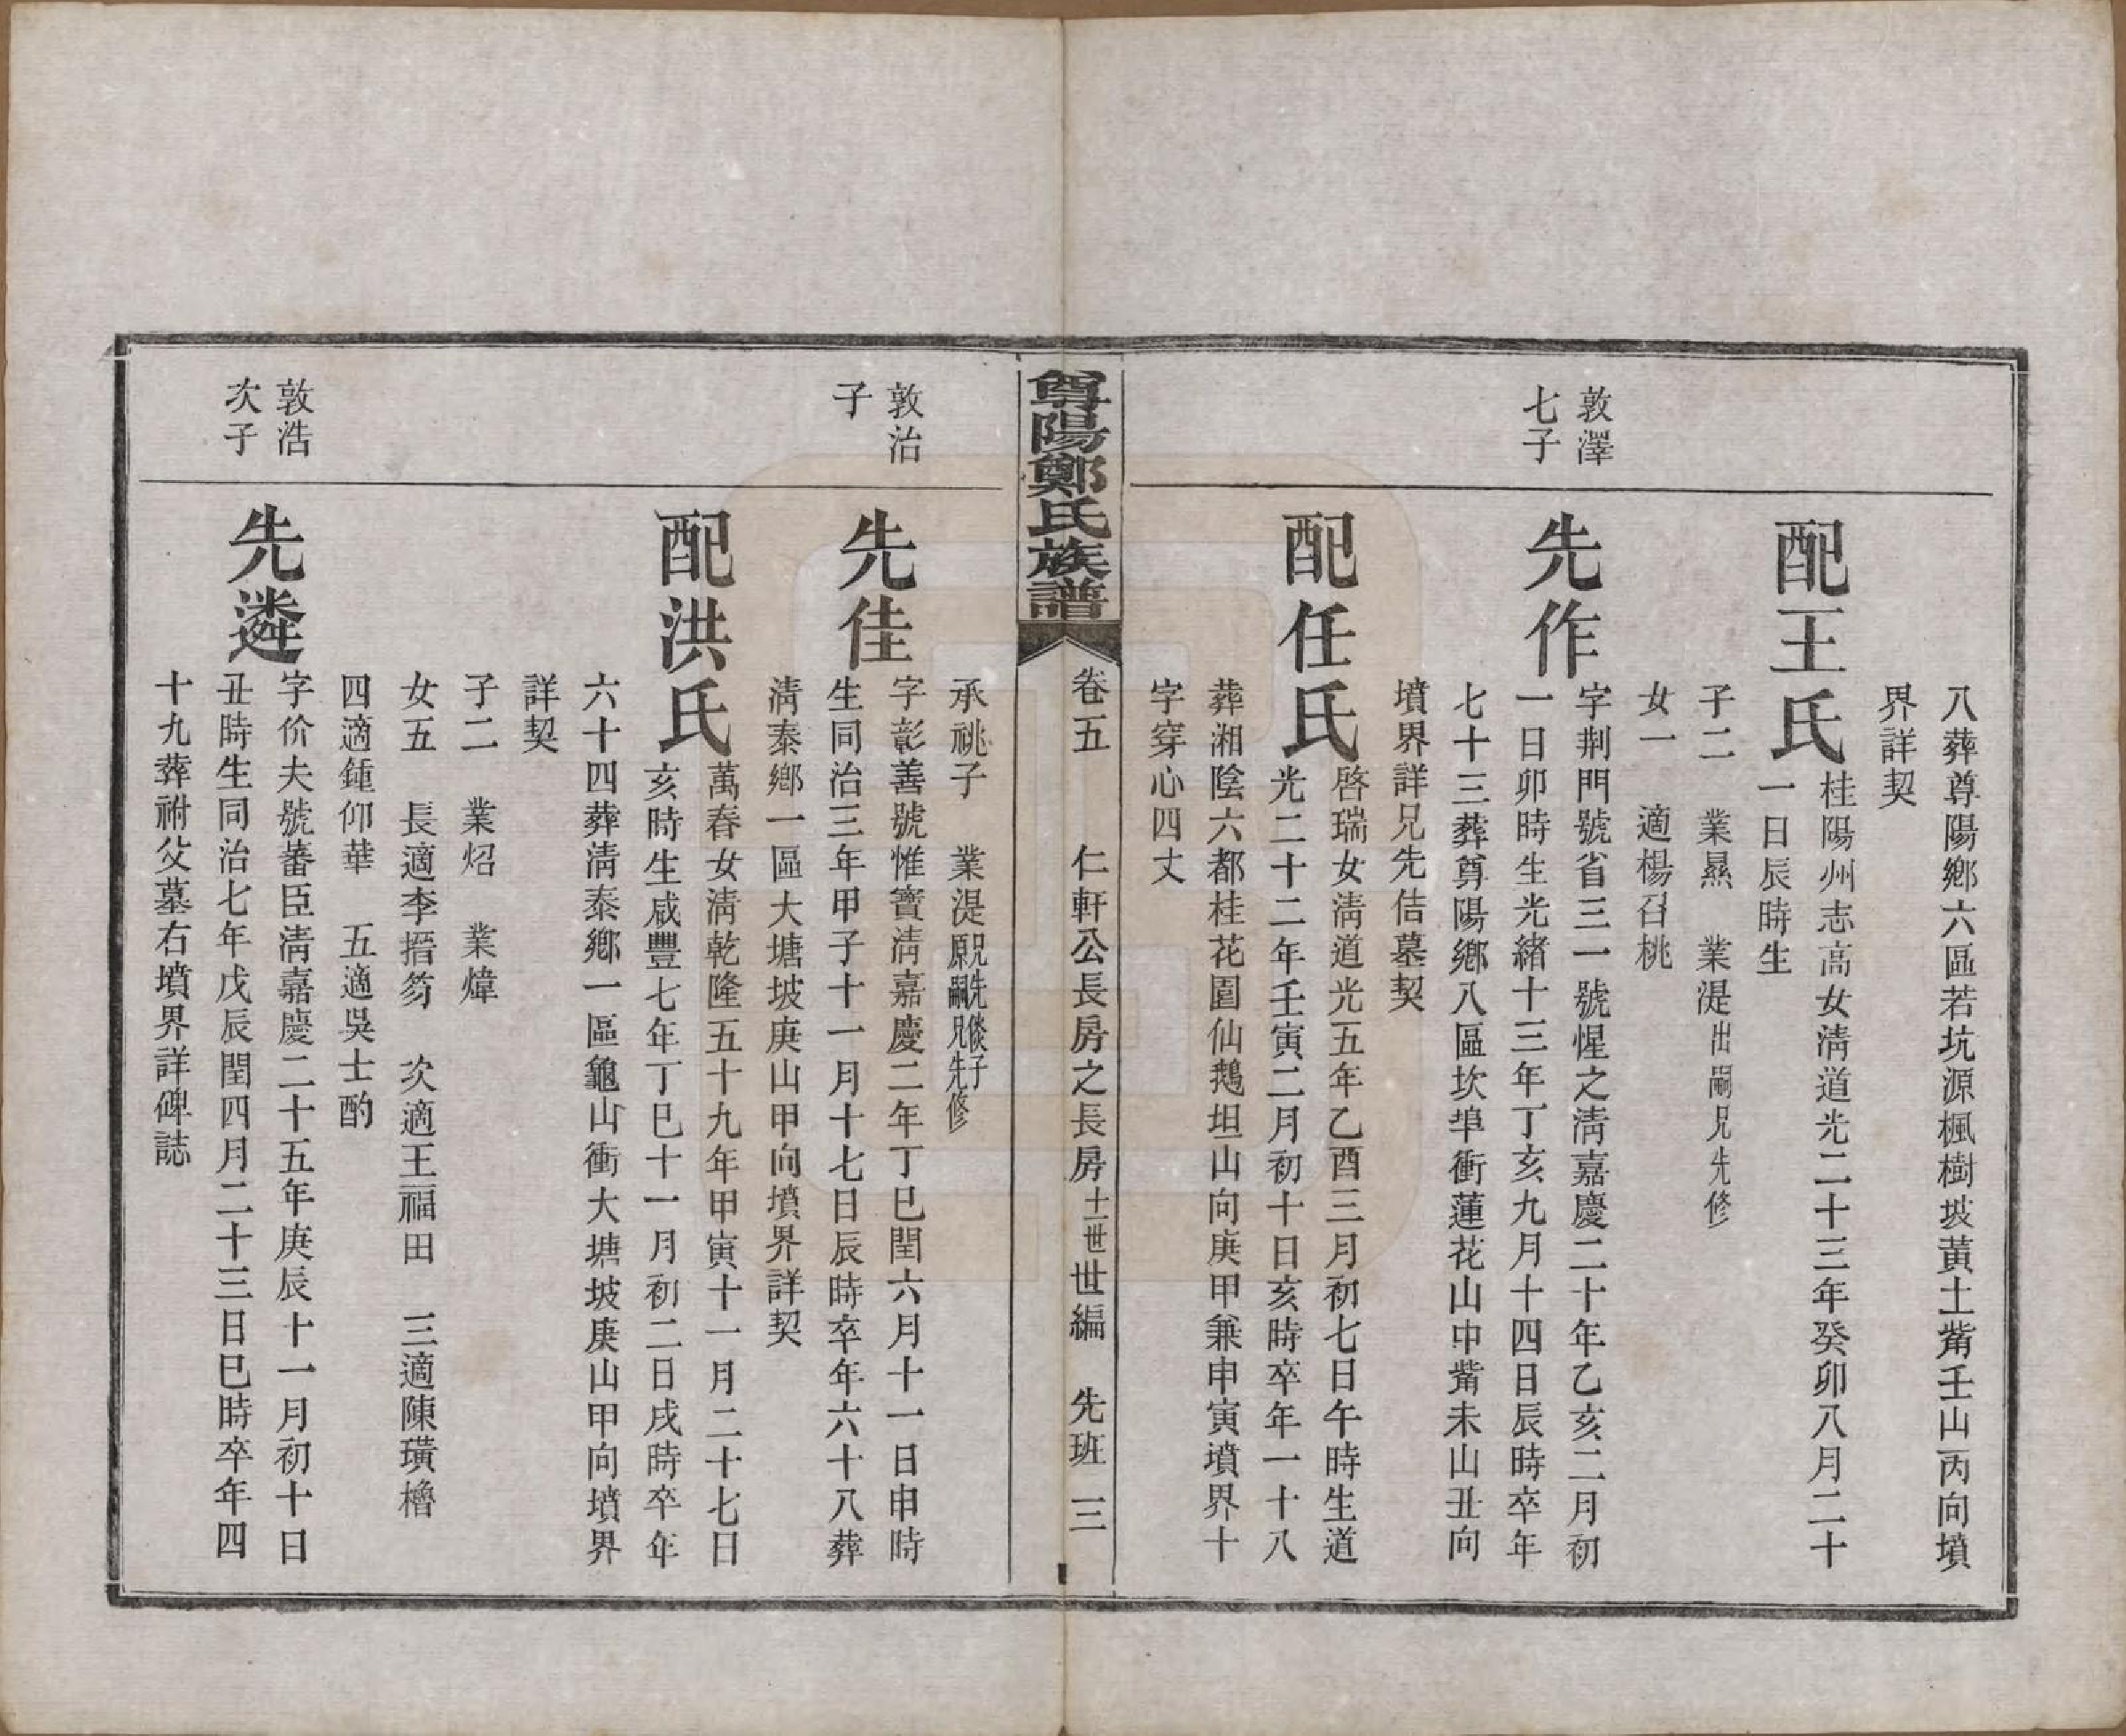 八葬尊陽鄉六區若坑源楓樹坡黃土觜壬山丙向墳
界詳契
配王氏
桂陽州志高女淸道光二十三年癸卯八月二十
一日辰時生
子二　業㬎　業湜出嗣兄先修
女一　適楊召桃
敦澤
七子
先作
字荆門號省三一號惺之淸嘉慶二十年乙亥二月初
一日卯時生光緖十三年丁亥九月十四日辰時卒年
七十三葬尊陽鄉八區坎埠衝蓮花山中觜未山丑向
墳界詳兄先佶墓契
配任氏
啓瑞女淸道光五年乙酉三月初七日午時生道
光二十二年壬寅二月初十日亥時卒年一十八
葬湘陰六都桂花園仙鵝坦山向庚甲兼申寅墳界十
字穿心四丈
尊陽鄭氏族譜
卷五　仁軒公長房之長房十一世世編　先班　三
承祧子　業湜兄先倓子原嗣兄先修
敦治
子
先佳
字彰善號惟寶淸嘉慶二年丁巳閏六月十一日申時
生同治三年甲子十一月十七日辰時卒年六十八葬
淸泰鄉一區大塘坡庚山甲向墳界詳契
配洪氏
萬春女淸乾隆五十九年甲寅十一月二十七日
亥時生咸豐七年丁巳十一月初二日戌時卒年
六十四葬淸泰鄉一區龜山衝大塘坡庚山甲向墳界
詳契
子二　業炤　業煒
女五　長適李搢笏　次適王福田　三適陳璜櫓
四適鍾仰華　五適吳士酌
敦浩
次子
先遴
字价夫號蕃臣淸嘉慶二十五年庚辰十一月初十日
丑時生同治七年戊辰閏四月二十三日巳時卒年四
十九葬祔父墓右墳界詳碑誌